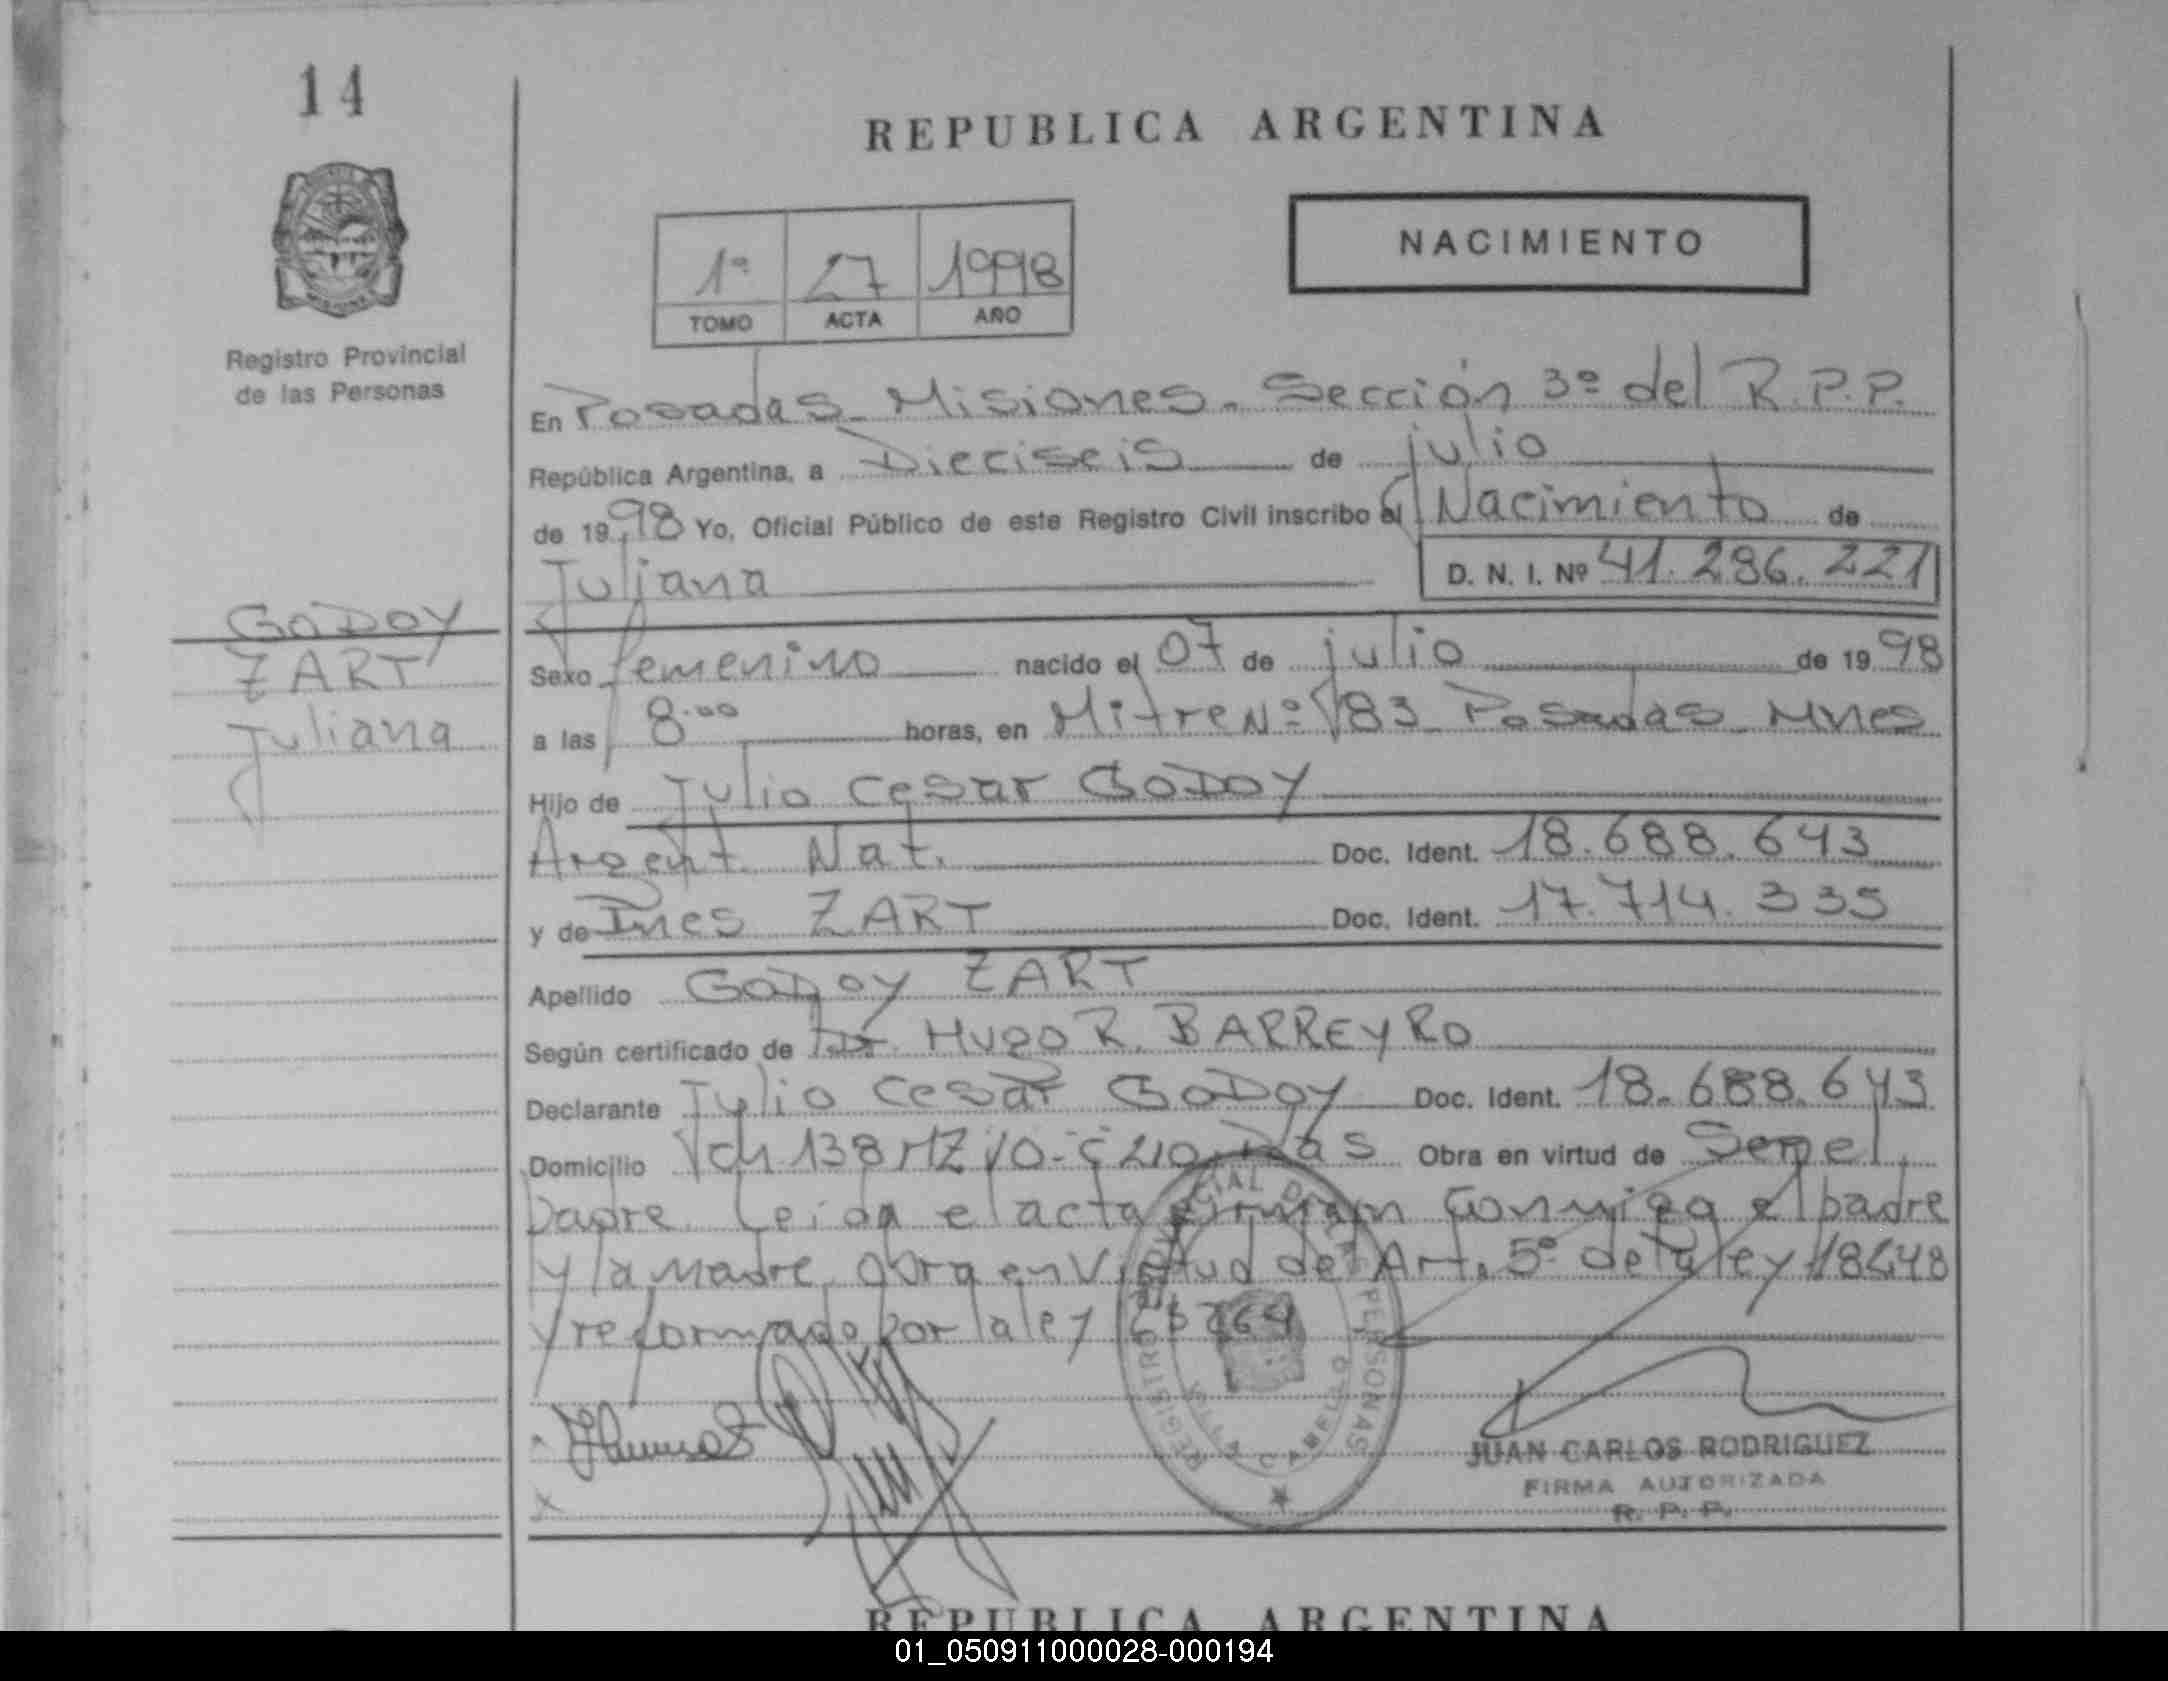 14
REPUBLICA ARGENTINA
1º 27 1998
TOMO ACTA AÑO
NACIMIENTO
Registro Provincial
de las Personas
En Posadas Misiones. Sección 3º del R.P.P.
República Argentina, a Dieciseis de julio
de 1998 Yo, Oficial Público de este Registro Civil inscribo el Nacimiento de
Juliana D. N. I. Nº 41.286.221
GODOY
ZART
Juliana
Sexo femenino nacido el 07 de julio de 1998
a las 8.00 horas, en Mitre Nº 183 Posadas Mnes
Hijo de Julio Cesar GODOY
Argent. Nat. Doc. Ident. 18.688.643
y de Ines ZART Doc. Ident. 17.714.335
Apellido GODOY ZART
Según certificado de Dr. Hugo R. BARREYRO
Declarante Julio Cesar GODOY Doc. Ident. 18.688.643
Domicilio Ch 138 MZ Obra en virtud de Ser el
Padre. Leida el acta firman conmigo el padre
y la madre. Obra en virtud del Art. 5º de la ley 18248
y reformado por la ley
REGISTRO PROVINCIAL DE LAS PERSONAS
VILLA CABELLO
JUAN CARLOS RODRIGUEZ
FIRMA AUTORIZADA
R. P. P.
REPUBLICA ARGENTINA
01_050911000028-000194